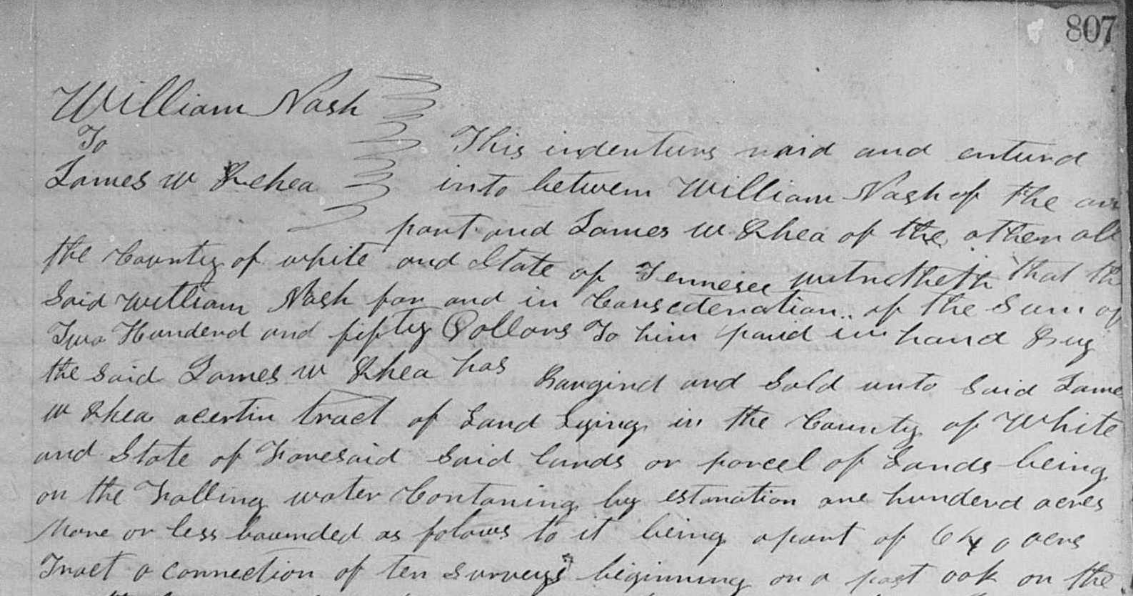 807
William Nash
To
James W Rhea
This indenture maid and enturd
into between William Nash of the
part and James W Rhea of the other all
the County of white and State of Tennesee witnetheth that th
Said William Nash for and in Consederation of the Sum of
Two Hunderd and fifty Dollors To him paid in hand By
the Said James W Rhea has Bargind and Sold unto Said Jame
W Rhea acertin tract of Land Lying in the County of White
and State of Foresaid Said lands or parcel of Lands being
on the Falling water Contaning by estmation one hunderd acres
More or less bounded as folows to it being apart of 640 acre
Tract a connection of ten Surveys beginning on a post oak on the